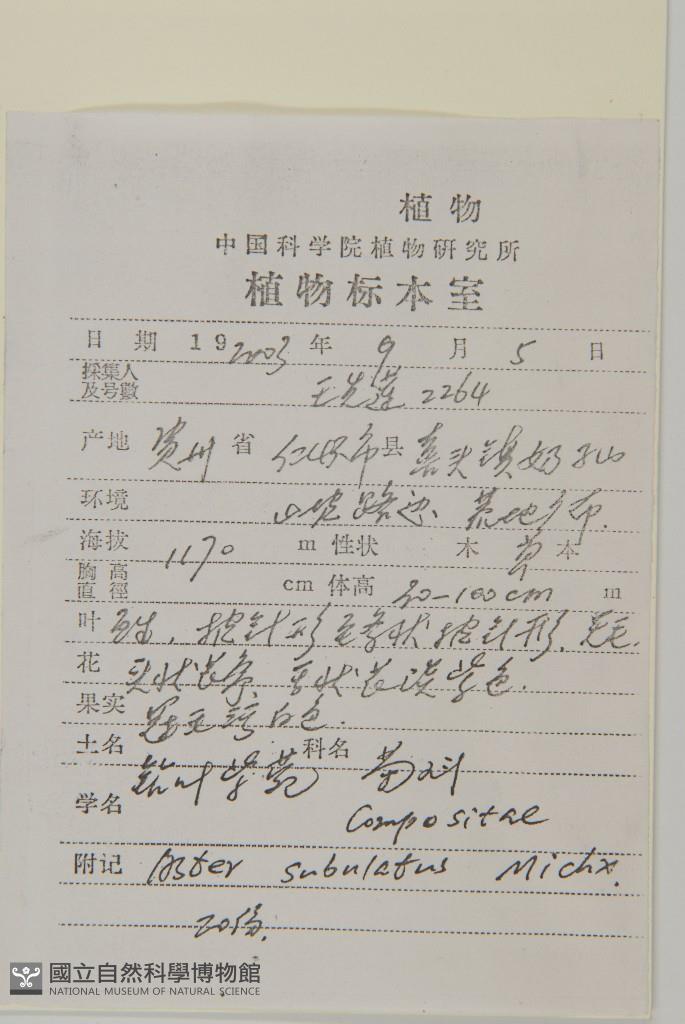 植物
中国科学院植物研究所
植物标本室
日期 19 2003 年 9 月 5 日
採集人
及号數 王先莲 2264
产地 贵州 省 仁怀市 县 喜头镇
环境 山坡路边, 荒地分布.
海拔 1170 m 性状 木 草 本
胸高
直徑 cm 体高 20-100cm m
叶 互生, 披针形至条状披针形, 无毛.
花 头状花序, 舌状花淡紫色.
果实 冠毛污白色.
土名 钻叶紫菀 科名 菊科
学名 Compositae
附记 Aster subulatus Michx.
20份.
國立自然科學博物館
NATIONAL MUSEUM OF NATURAL SCIENCE